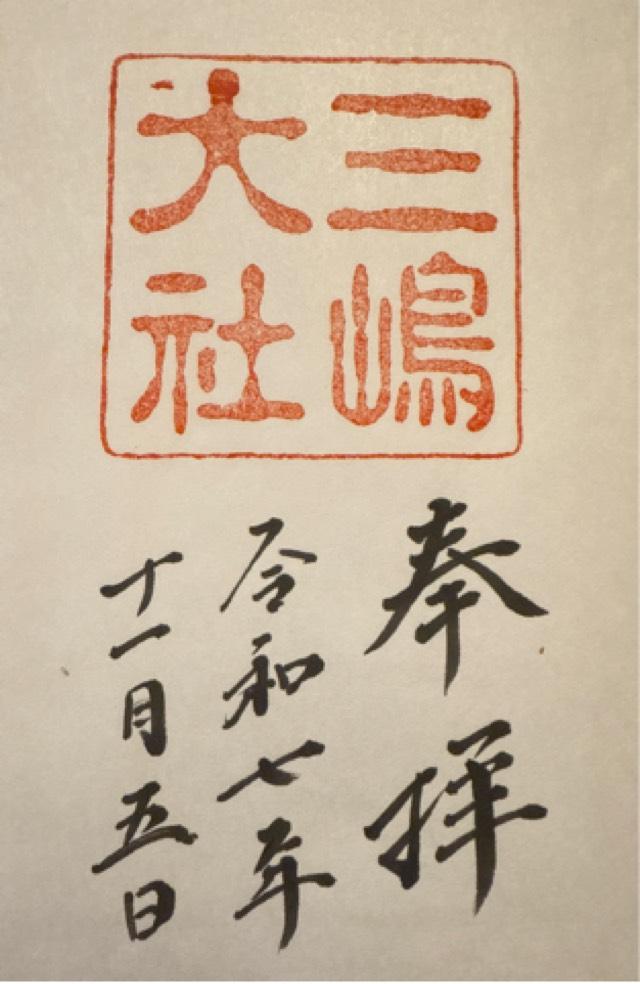 三嶋
大社
奉拝
令和七年
十一月五日